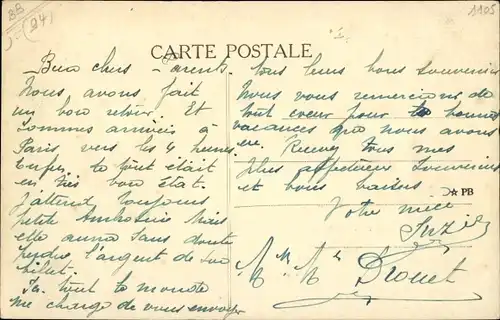 BB
(84)
1105
CARTE POSTALE
Bien chers parents.
Nous avons fait
un bon retour. Et
sommes arrivés à
Paris vers les 4 heures
Enfin, le tout était
en très bon état.
J'attend toujours
petite Ambroisie Mais
elle aura sans doute
perdre l'argent de son
billet.
Ici tout le monde
me charge de vous envoyer
tous leurs bons souvenirs
Nous vous remercions de
tout cœur pour le bonnes
vacances que nous avons
eu. Recevez tous mes
plus affectueux souvenirs
et bons baisers.
PB
Votre nièce
Suzie
Drouet